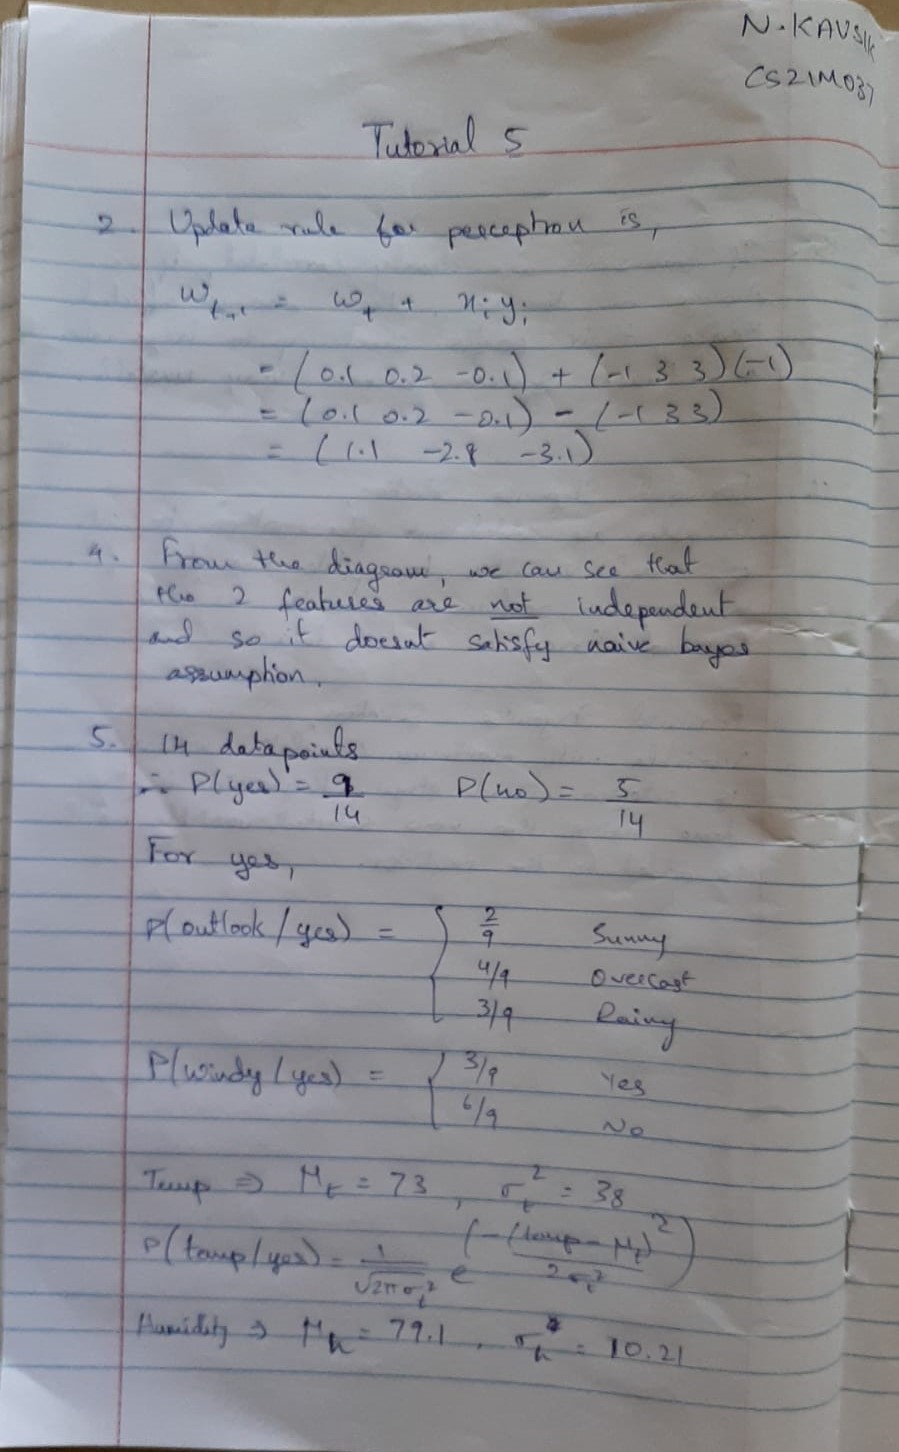 N.KAVSIK
CS21M037
Tutorial 5
2. Update rule for perceptron is,
w_{t+1} = w_t + x_i y_i
= (0.1 0.2 -0.1) + (-1 3 3)(-1)
= (0.1 0.2 -0.1) - (-1 3 3)
= (1.1 -2.8 -3.1)
4. From the diagram, we can see that
the 2 features are not independent
and so it doesnt satisfy naive bayes
assumption.
5. 14 datapoints
∴ P(yes) = 9/14 P(no) = 5/14
For yes,
P(outlook/yes) = { 2/9 Sunny
4/9 Overcast
3/9 Rainy
P(windy/yes) = { 3/9 Yes
6/9 No
Temp ⇒ μ_t = 73, σ_t^2 = 38
P(temp/yes) = 1/√(2πσ_t^2) e^(-(temp-μ_t)^2/2σ_t^2)
Humidity ⇒ μ_h = 79.1, σ_h = 10.21